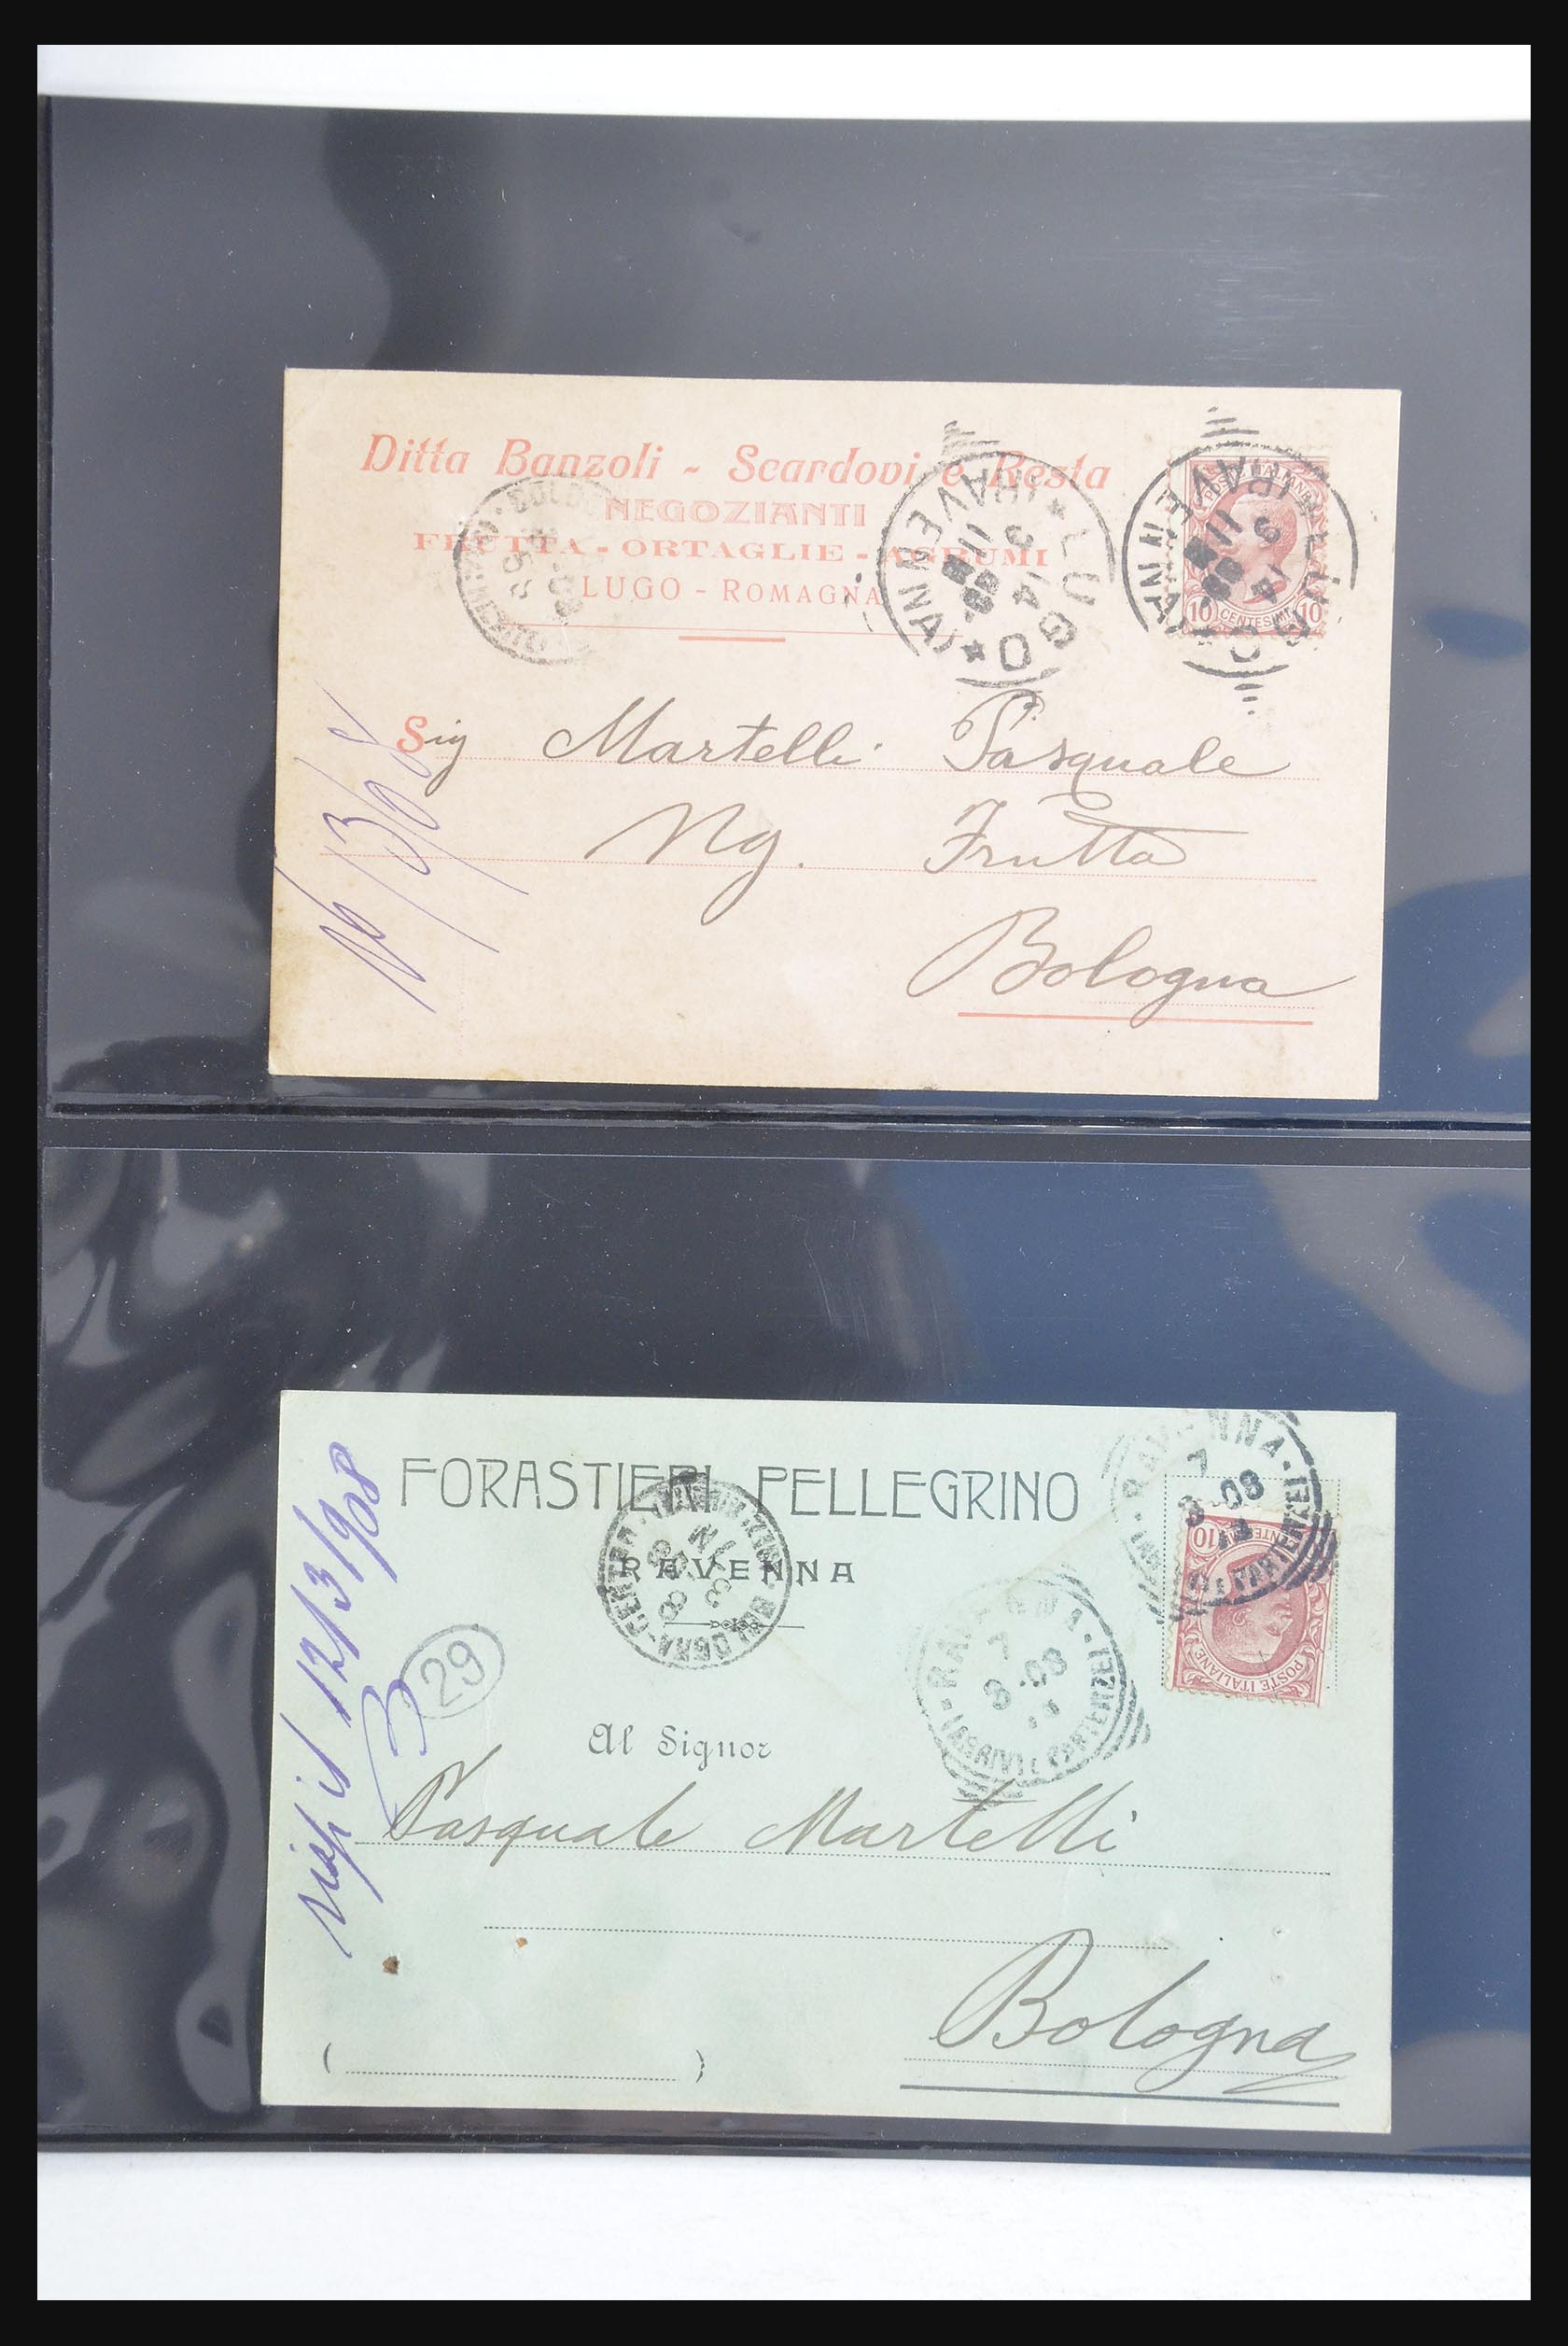 Ditta Banzoli - Scardovi e Resta
NEGOZIANTI
FRUTTA - ORTAGLIE - AGRUMI
LUGO - ROMAGNA
* LUGO * (RAVENNA)
9 14
11
* LUGO * (RAVENNA)
9 14
11
10 CENTESIMI 10
Sig Martelli Pasquale
Ng. Frutta
Bologna
FORASTIERI PELLEGRINO
RAVENNA
RAVENNA
7
3 - 08
RAVENNA
7
3 - 08
10
POSTE ITALIANE
risp il 12/3/908
29
Al Signor
Pasquale Martelli
Bologna
( )